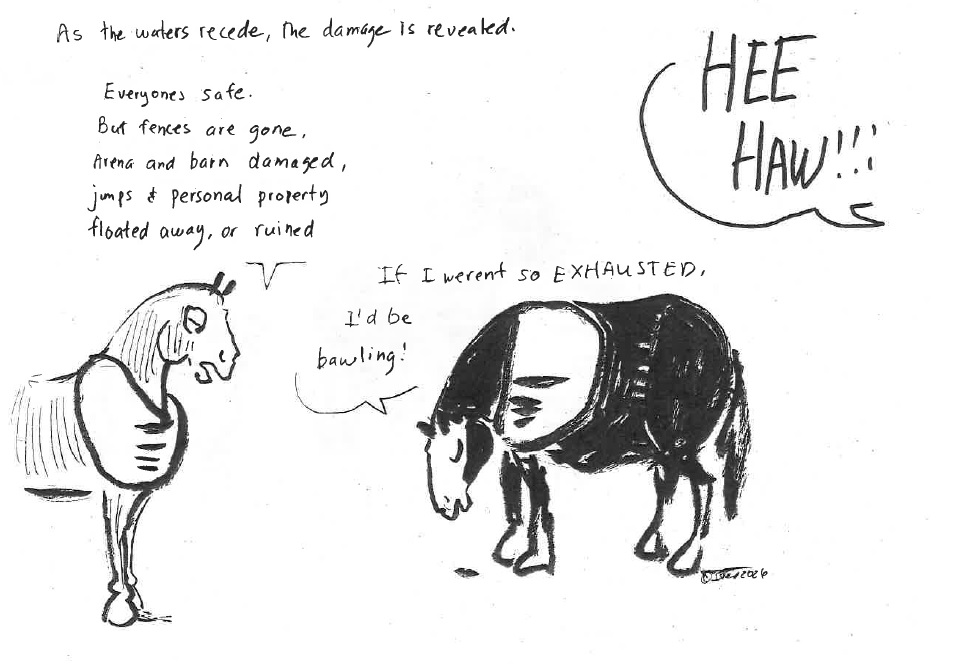 As the waters recede, the damage is revealed.
Everyones safe.
But fences are gone,
Arena and barn damaged,
jumps & personal property
floated away, or ruined
HEE
HAW!!!
If I werent so EXHAUSTED,
I'd be
bawling!
© 2026